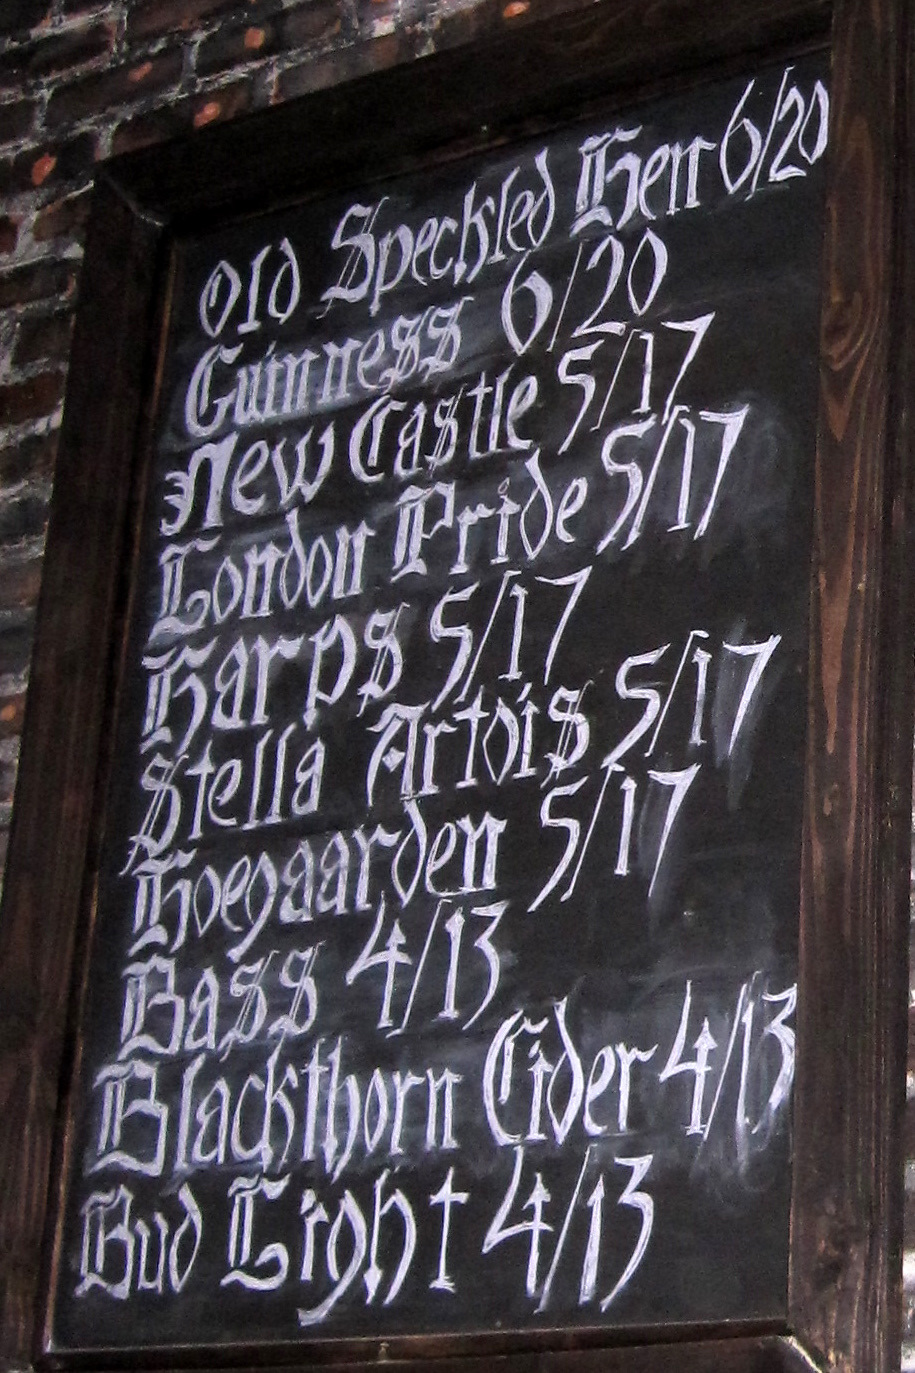 Old Speckled Hen 6/20
Guinness 6/20
New Castle 5/17
London Pride 5/17
Harps 5/17
Stella Artois 5/17
Hoegaarden 5/17
Bass 4/13
Blackthorn Cider 4/13
Bud Light 4/13